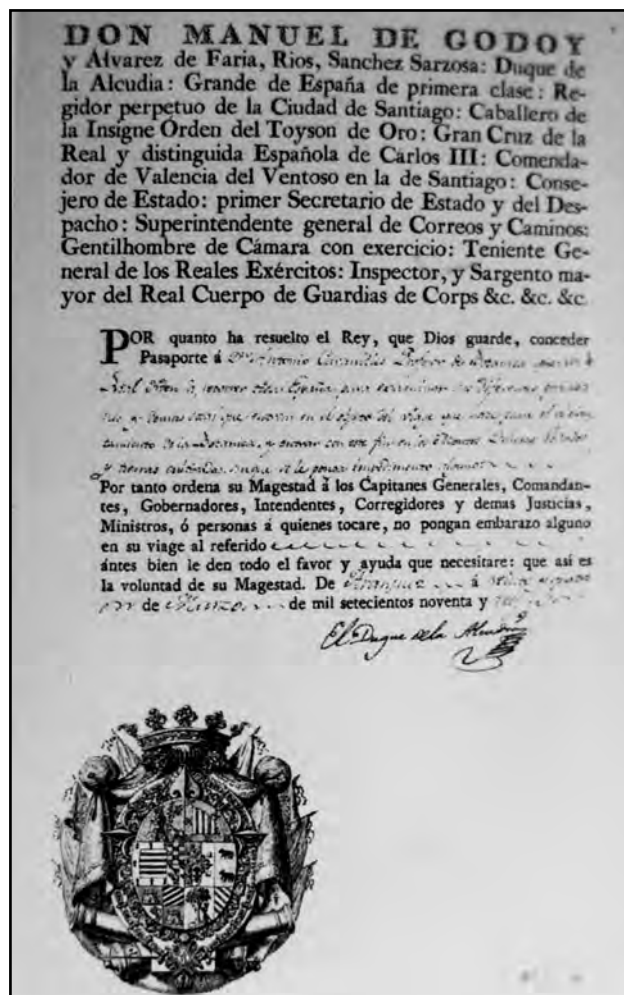 DON MANUEL DE GODOY
y Alvarez de Faria, Rios, Sanchez Sarzosa: Duque de
la Alcudia: Grande de España de primera clase: Re-
gidor perpetuo de la Ciudad de Santiago: Caballero de
la Insigne Orden del Toyson de Oro: Gran Cruz de la
Real y distinguida Española de Carlos III: Comenda-
dor de Valencia del Ventoso en la de Santiago: Conse-
jero de Estado: primer Secretario de Estado y del Des-
pacho: Superintendente general de Correos y Caminos:
Gentilhombre de Cámara con exercicio: Teniente Ge-
neral de los Reales Exércitos: Inspector, y Sargento ma-
yor del Real Cuerpo de Guardias de Corps &c. &c. &c.
POR quanto ha resuelto el Rey, que Dios guarde, conceder
Pasaporte á Dn Antonio Cavanilles de
Real Orden España para
y que en el del viage que para el
de la Botanica, y con este fin en los
y
Por tanto ordena su Magestad á los Capitanes Generales, Comandan-
tes, Gobernadores, Intendentes, Corregidores y demas Justicias,
Ministros, ó personas á quienes tocare, no pongan embarazo alguno
en su viage al referido
ántes bien le den todo el favor y ayuda que necesitare: que asi es
la voluntad de su Magestad. De Aranjuez á
de Marzo de mil setecientos noventa y
El Duque de la Alcudia